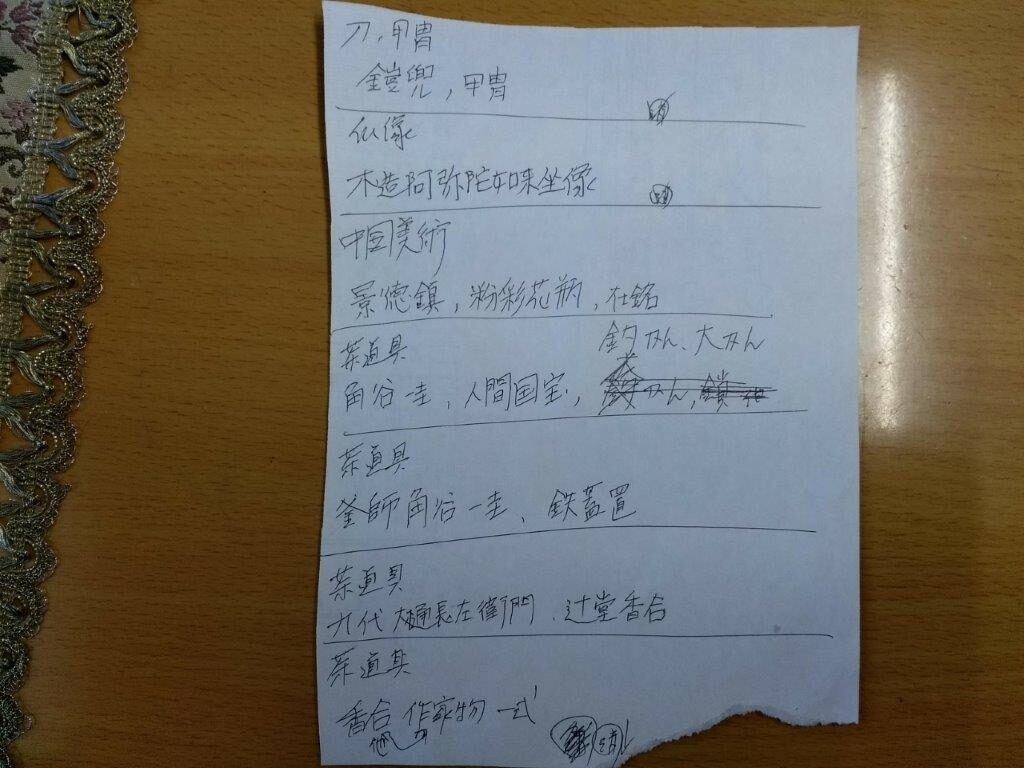 刀，甲冑
鎧兜，甲冑
仏像
木造阿弥陀如来坐像
中国美術
景徳鎮，粉彩花瓶，在銘
茶道具
釣カん、大カん
角谷一圭、人間国宝，
茶道具
釜師角谷一圭、鉄蓋置
茶道具
九代大樋長左衛門、辻堂香合
茶道具
香合 作家物 一式
他